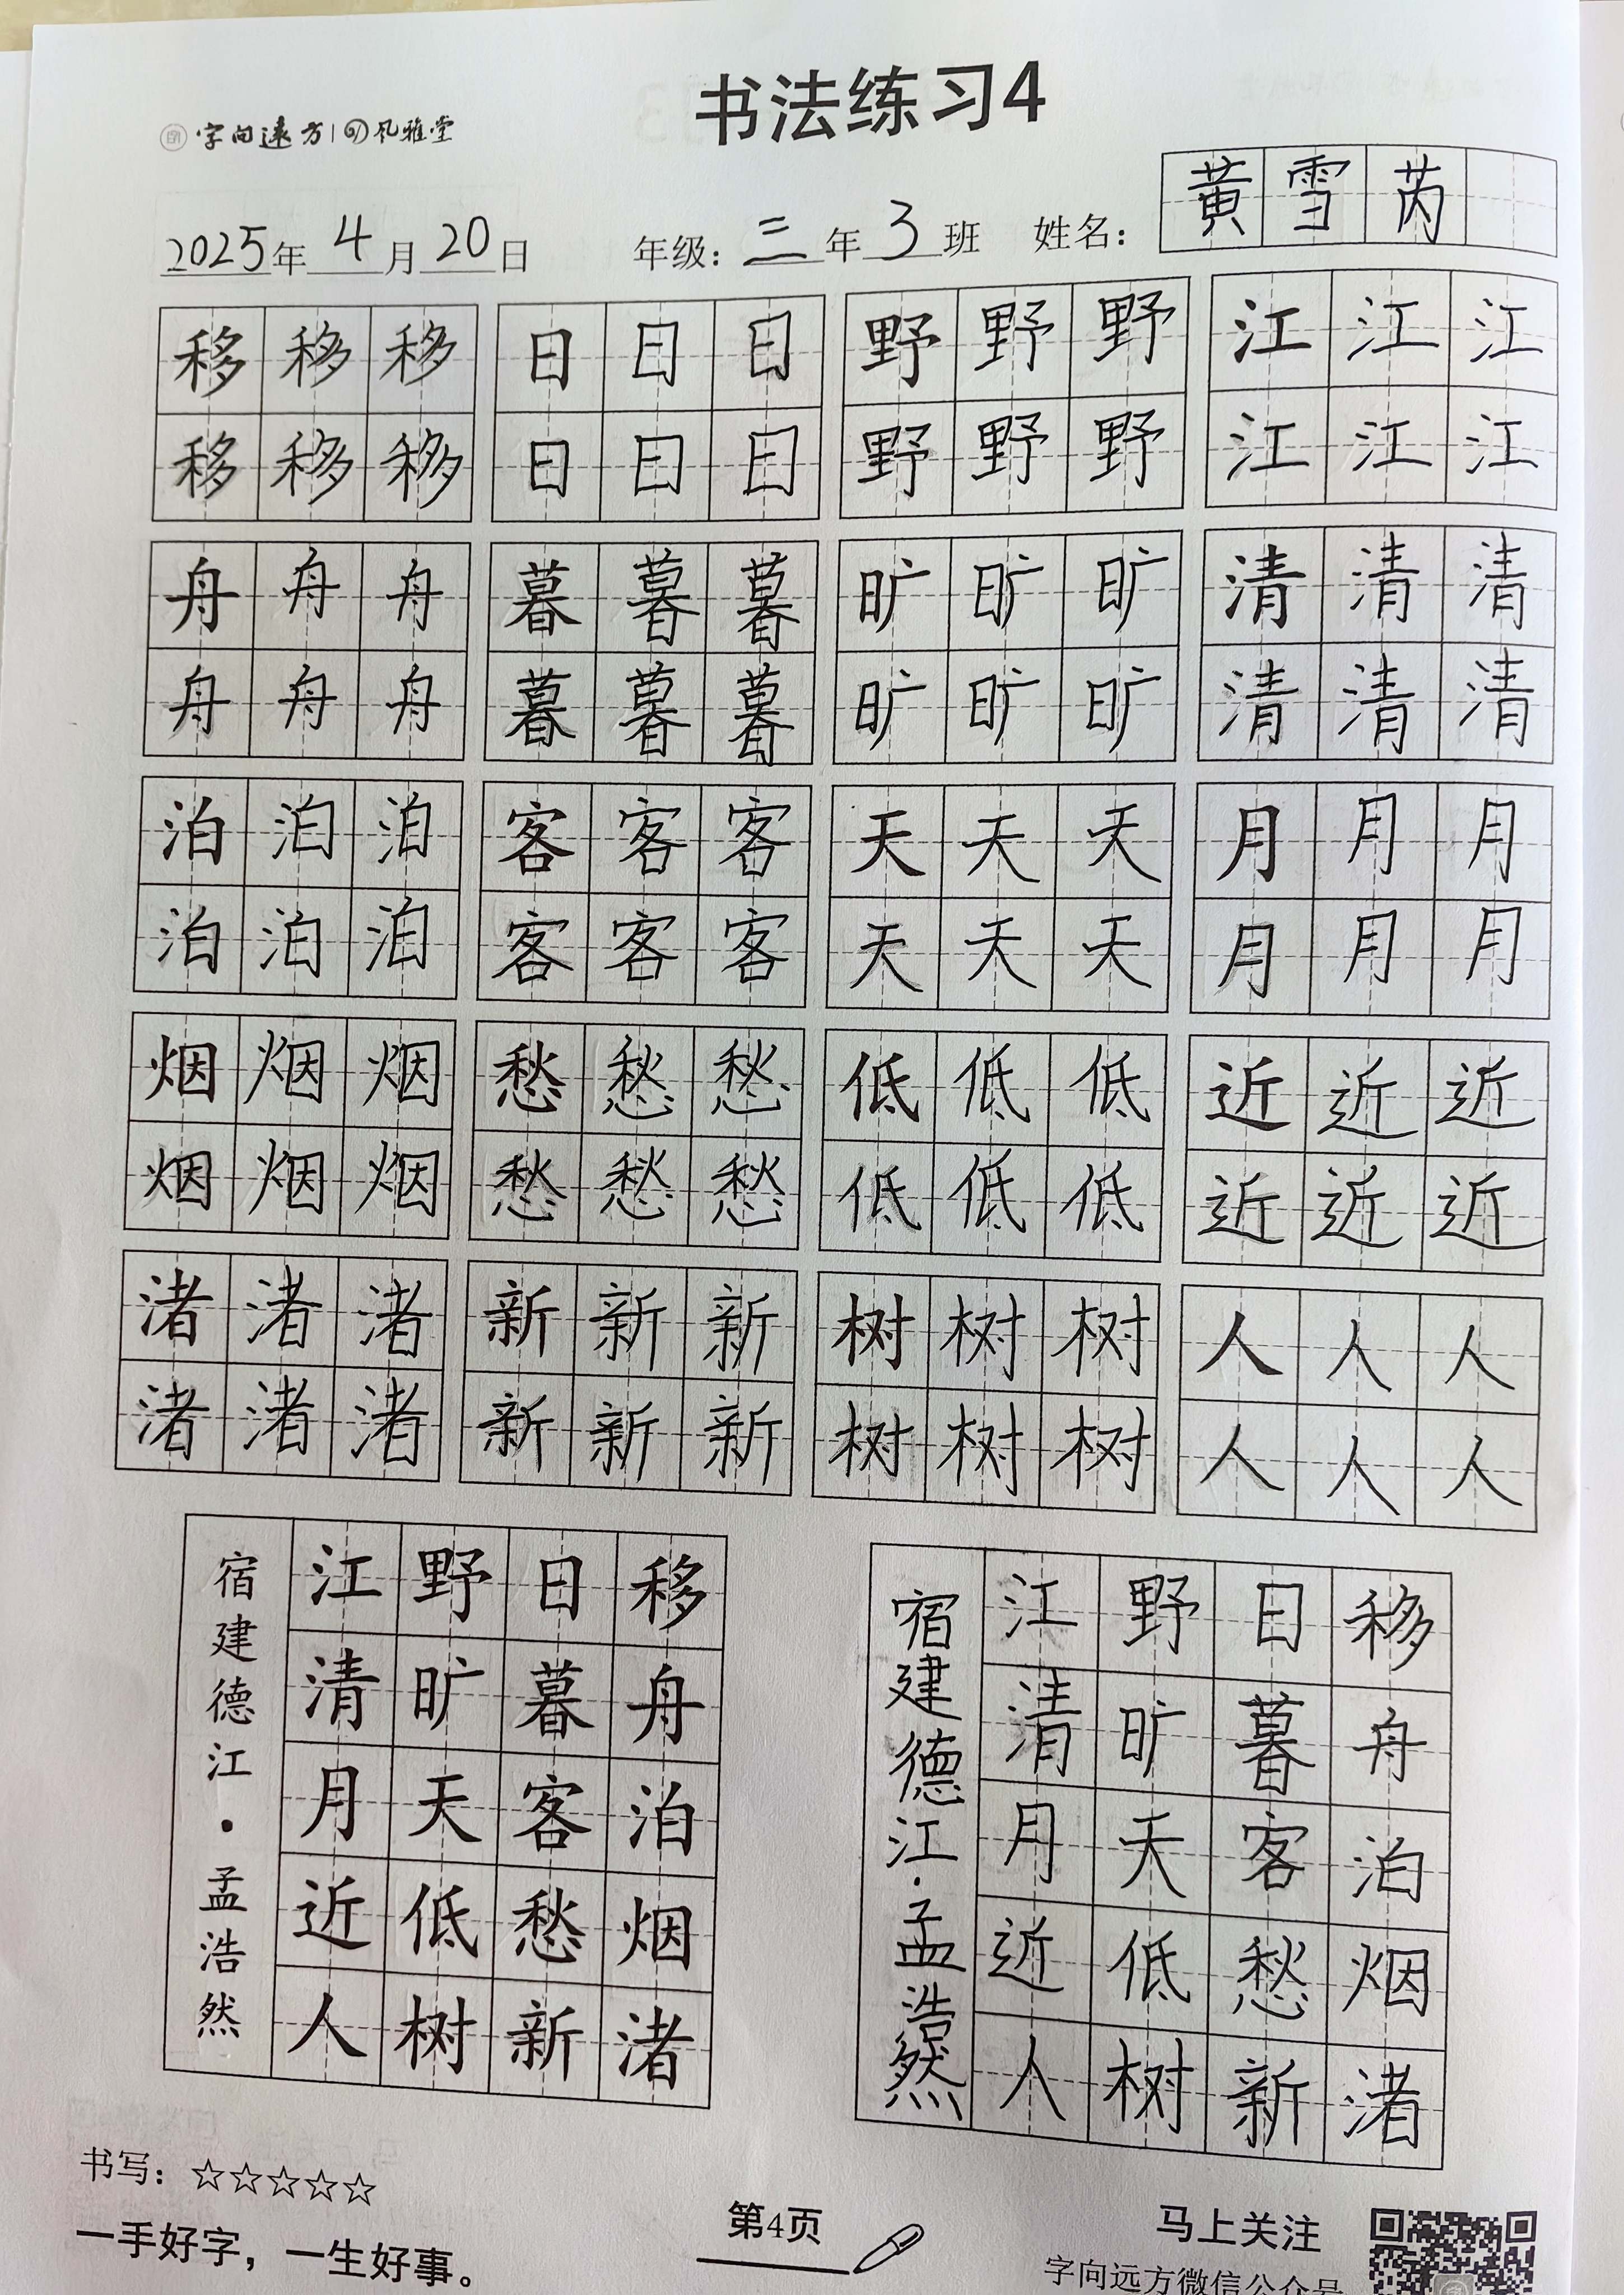 书法练习4
字向远方 风雅堂
黄雪芮
2025年4月20日 年级：三年3班 姓名：
移移移 日日日 野野野 江江江
移移移 日日日 野野野 江江江
舟舟舟 暮暮暮 旷旷旷 清清清
舟舟舟 暮暮暮 旷旷旷 清清清
泊泊泊 客客客 天天天 月月月
泊泊泊 客客客 天天天 月月月
烟烟烟 愁愁愁 低低低 近近近
烟烟烟 愁愁愁 低低低 近近近
渚渚渚 新新新 树树树 人人人
渚渚渚 新新新 树树树 人人人
移舟泊烟渚
日暮客愁新
野旷天低树
江清月近人
宿建德江·孟浩然
移舟泊烟渚
日暮客愁新
野旷天低树
江清月近人
宿建德江·孟浩然
书写：☆☆☆☆☆
一手好字，一生好事。
第4页
马上关注
字向远方微信公众号